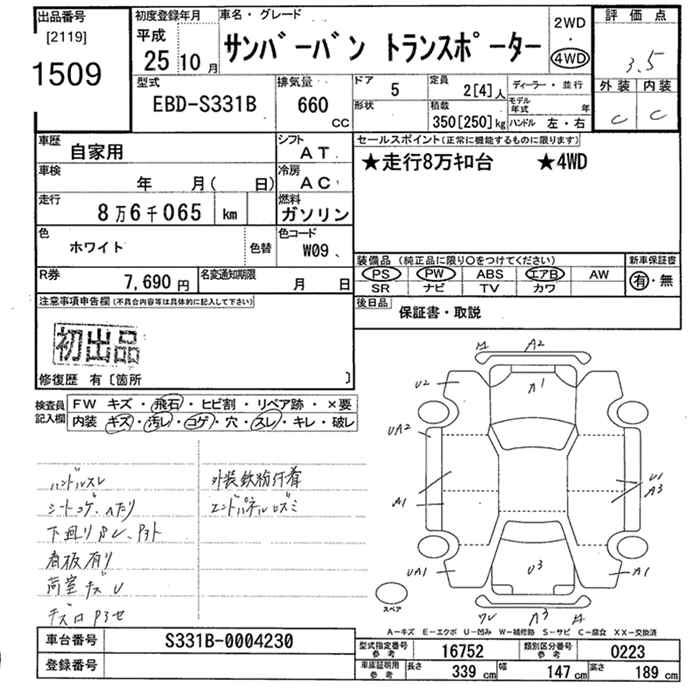 出品番号 初度登録年月 車名・グレード 2WD 評価点
[2119] 平成 サンバーバン トランスポーター ・
1509 25年10月 4WD 3.5
型式 排気量 ドア 定員 ディーラー・並行 外装 内装
EBD-S331B 660CC 5 2[4]人 モデル年式 年 C C
形状 積載 350[250]kg ハンドル 左・右
車歴 自家用 シフト AT セールスポイント(正常に機能するものに限ります)
車検 年 月( 日) 冷房 AC ★走行8万キロ台 ★4WD
走行 8万6千065 km 燃料 ガソリン
色 ホワイト 色替 色コード W09
装備品 (純正品に限り○をつけてください) 新車保証書
PS PW ABS エアB AW 有・無
SR ナビ TV カワ
R券 7,690円 名変通知期限 月 日
後日品 保証書・取説
注意事項申告欄(不具合内容等は具体的に記入して下さい)
初出品
修復歴 有〔箇所 〕
検査員記入欄 FW キズ・飛石・ヒビ割・リペア跡・×要
内装 キズ・汚レ・コゲ・穴・スレ・キレ・破レ
ハンドルスレ 外装鉄粉付着
シートコゲ、ヘタリ エンドパネルUズミ
下廻り
看板有り
荷室キズU
A2
A1
U2
UA2
A1
U1
A3
UA1
U3
A1
A3
スペア
A-キズ E-エクボ U-凹み W-補修跡 S-サビ C-腐食 XX-交換済
車台番号 S331B-0004230
登録番号
型式指定番号 参考 16752 類別区分番号 参考 0223
車庫証明用 参考 長さ 339cm 幅 147cm 高さ 189cm